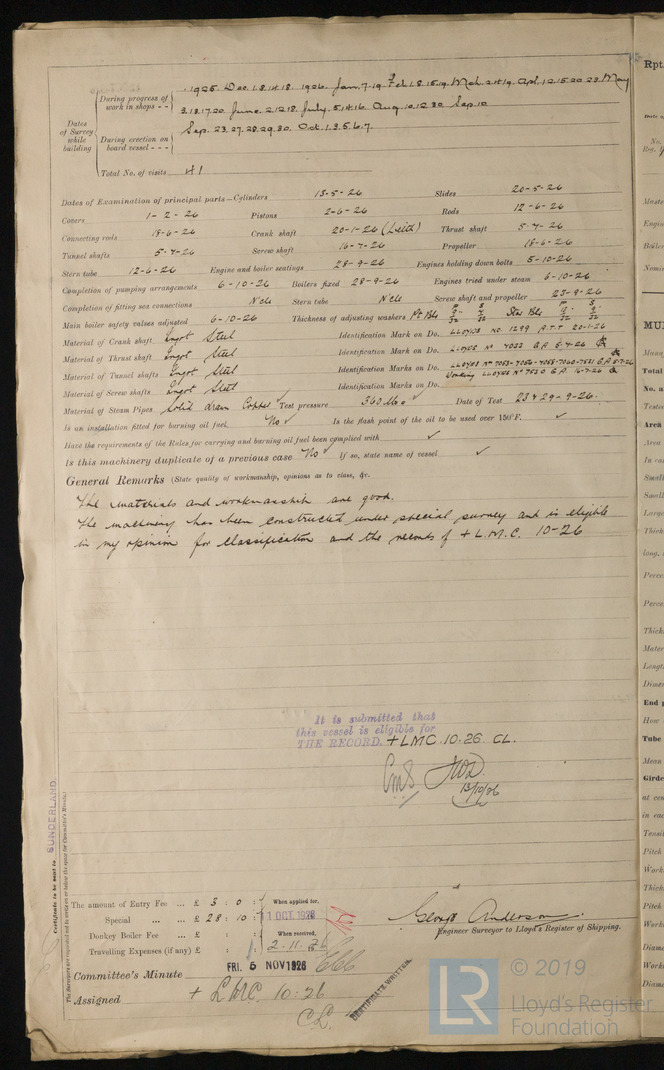 Dates of Survey while building
During progress of work in shops - - 1925. Dec. 1.8.14.18. 1926. Jan. 7.19. Feb. 1.8.15.19. Mch. 2.4.19. Apl. 12.15.20.23. May
3.13.17.20. June. 2.12.18. July. 5.14.16. Aug. 10.12.30. Sep. 10
During erection on board vessel - - - Sep. 23.27.28.29.30. Oct. 1.3.5.6.7.
Total No. of visits 41
Dates of Examination of principal parts—Cylinders 13-5-26 Slides 20-5-26
Covers 1-2-26 Pistons 2-6-26 Rods 12-6-26
Connecting rods 18-6-26 Crank shaft 20-1-26 (Leith) Thrust shaft 5-4-26
Tunnel shafts 5-7-26 Screw shaft 16-7-26 Propeller 18-6-26
Stern tube 12-6-26 Engine and boiler seatings 28-9-26 Engines holding down bolts 5-10-26
Completion of pumping arrangements 6-10-26 Boilers fixed 28-9-26 Engines tried under steam 6-10-26
Completion of fitting sea connections N'cle Stern tube N'cle Screw shaft and propeller 23-9-26
Main boiler safety valves adjusted 6-10-26 Thickness of adjusting washers
Material of Crank shaft Ingot Steel Identification Mark on Do. LLOYDS NO 1299 A.T.T 20-1-26
Material of Thrust shaft Ingot Steel Identification Mark on Do. LLOYDS Nº 7033 G.A 5-4-26
Material of Tunnel shafts Ingot Steel Identification Marks on Do.
Material of Screw shafts Ingot Steel Identification Marks on Do. LLOYDS Nº 7030 G.A. 16-7-26
Material of Steam Pipes Solid drawn Copper ✓ Test pressure 360 lbs ✓ Date of Test 23 & 29-9-26.
Is an installation fitted for burning oil fuel No ✓ Is the flash point of the oil to be used over 150°F. ✓
Have the requirements of the Rules for carrying and burning oil fuel been complied with ✓
Is this machinery duplicate of a previous case No ✓ If so, state name of vessel ✓
General Remarks (State quality of workmanship, opinions as to class, &c.
The materials and workmanship are good.
The machinery has been constructed under special survey and is eligible
in my opinion for classification and the records of + L.M.C. 10-26
It is submitted that
this vessel is eligible for
THE RECORD. + LMC 10.26 CL.
13/10/26
Certificate to be sent to SUNDERLAND.
The amount of Entry Fee ... £ 3 : 0 : When applied for,
Special ... ... £ 28 : 10 : 11 OCT 1926
Donkey Boiler Fee ... £ : : When received,
Travelling Expenses (if any) £ : : 2.11.26
George Anderson
Engineer Surveyor to Lloyd's Register of Shipping.
Committee's Minute FRI. 5 NOV 1926
Assigned + LMC 10:26
CL.
CERTIFICATE WRITTEN.
© 2019
LR
Lloyd's Register
Foundation
Rpt.